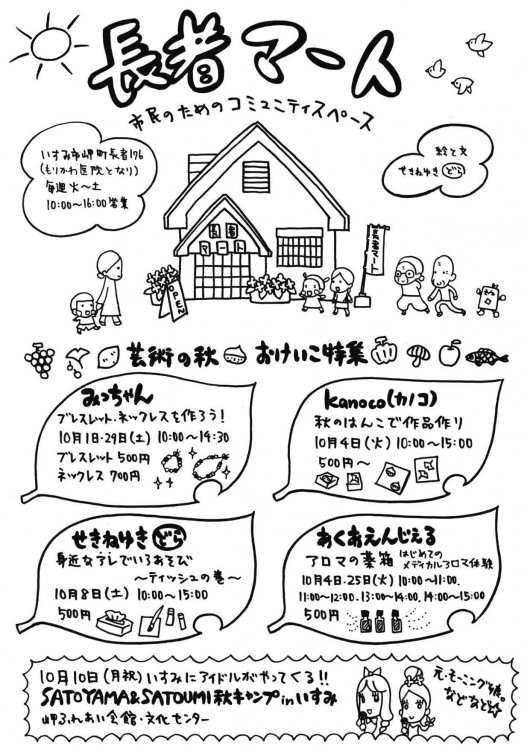 長者マート
市民のためのコミュニティスペース
いすみ市岬町長者176
(もりかわ医院となり)
毎週火〜土
10:00〜16:00営業
絵と文
せきねゆき どら
長者
マート
長者マート
OPEN
芸術の秋 おけいこ特集
みっちゃん
ブレスレット、ネックレスを作ろう!
10月1日・29日(土) 10:00〜14:30
ブレスレット 500円
ネックレス 700円
kanoco(カノコ)
秋のはんこで作品作り
10月4日(火) 10:00〜15:00
500円〜
せきねゆき どら
身近なうしでいろあそび
〜ティッシュの巻〜
10月8日(土) 10:00〜15:00
500円
あくあえんじぇる
アロマの薬箱 はじめての
メディカルアロマ体験
10月4日.25日(火) 10:00〜11:00.
11:00〜12:00.13:00〜14:00.14:00〜15:00
500円
10月10日(月祝)いすみにアイドルがやってくる!!
SATOYAMA&SATOUMI秋キャンプinいすみ
岬ふれあい会館・文化センター
元・モーニング娘。
などなど☆